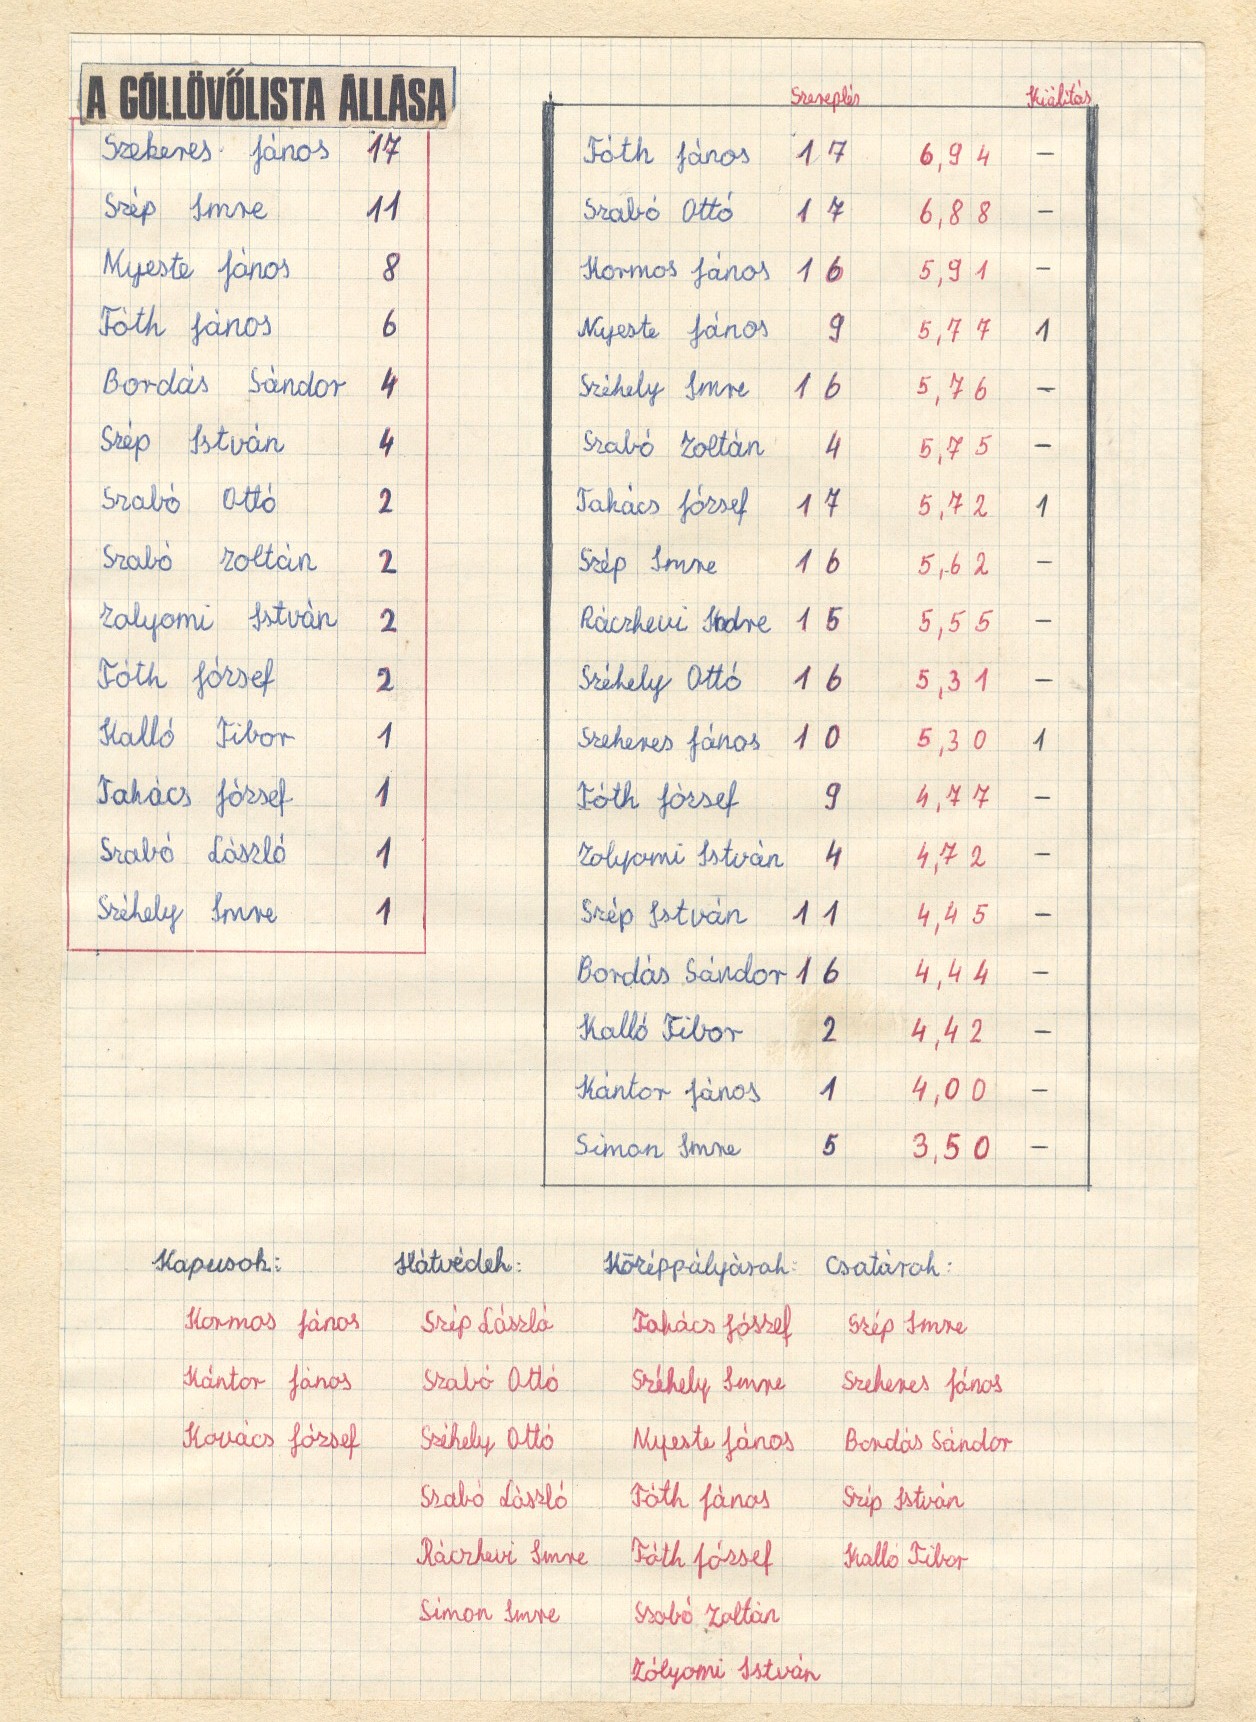 A GÓLLÖVŐLISTA ÁLLÁSA
Szekeres János 17
Szép Imre 11
Nyeste János 8
Tóth János 6
Bordás Sándor 4
Szép István 4
Szabó Ottó 2
Szabó Zoltán 2
Zolyomi István 2
Tóth József 2
Kalló Tibor 1
Takács József 1
Szabó László 1
Székely Imre 1
Szereplés Kiálitás
Tóth János 17 6,94 –
Szabó Ottó 17 6,88 –
Kormos János 16 5,91 –
Nyeste János 9 5,77 1
Székely Imre 16 5,76 –
Szabó Zoltán 4 5,75 –
Takács József 17 5,72 1
Szép Imre 16 5,62 –
Ráczkevi 15 5,55 –
Székely Ottó 16 5,31 –
Szekeres János 10 5,30 1
Tóth József 9 4,77 –
Zolyomi István 4 4,72 –
Szép István 11 4,45 –
Bordás Sándor 16 4,44 –
Kalló Tibor 2 4,42 –
Kántor János 1 4,00 –
Simon Imre 5 3,50 –
Kapusok: Hátvédek: Középpályások: Csatárok:
Kormos János Szép László Takács József Szép Imre
Kántor János Szabó Ottó Székely Imre Szekeres János
Kovács József Székely Ottó Nyeste János Bordás Sándor
Szabó László Tóth János Szép István
Ráczkevi Imre Tóth József Kalló Tibor
Simon Imre Szabó Zoltán
Zólyomi István